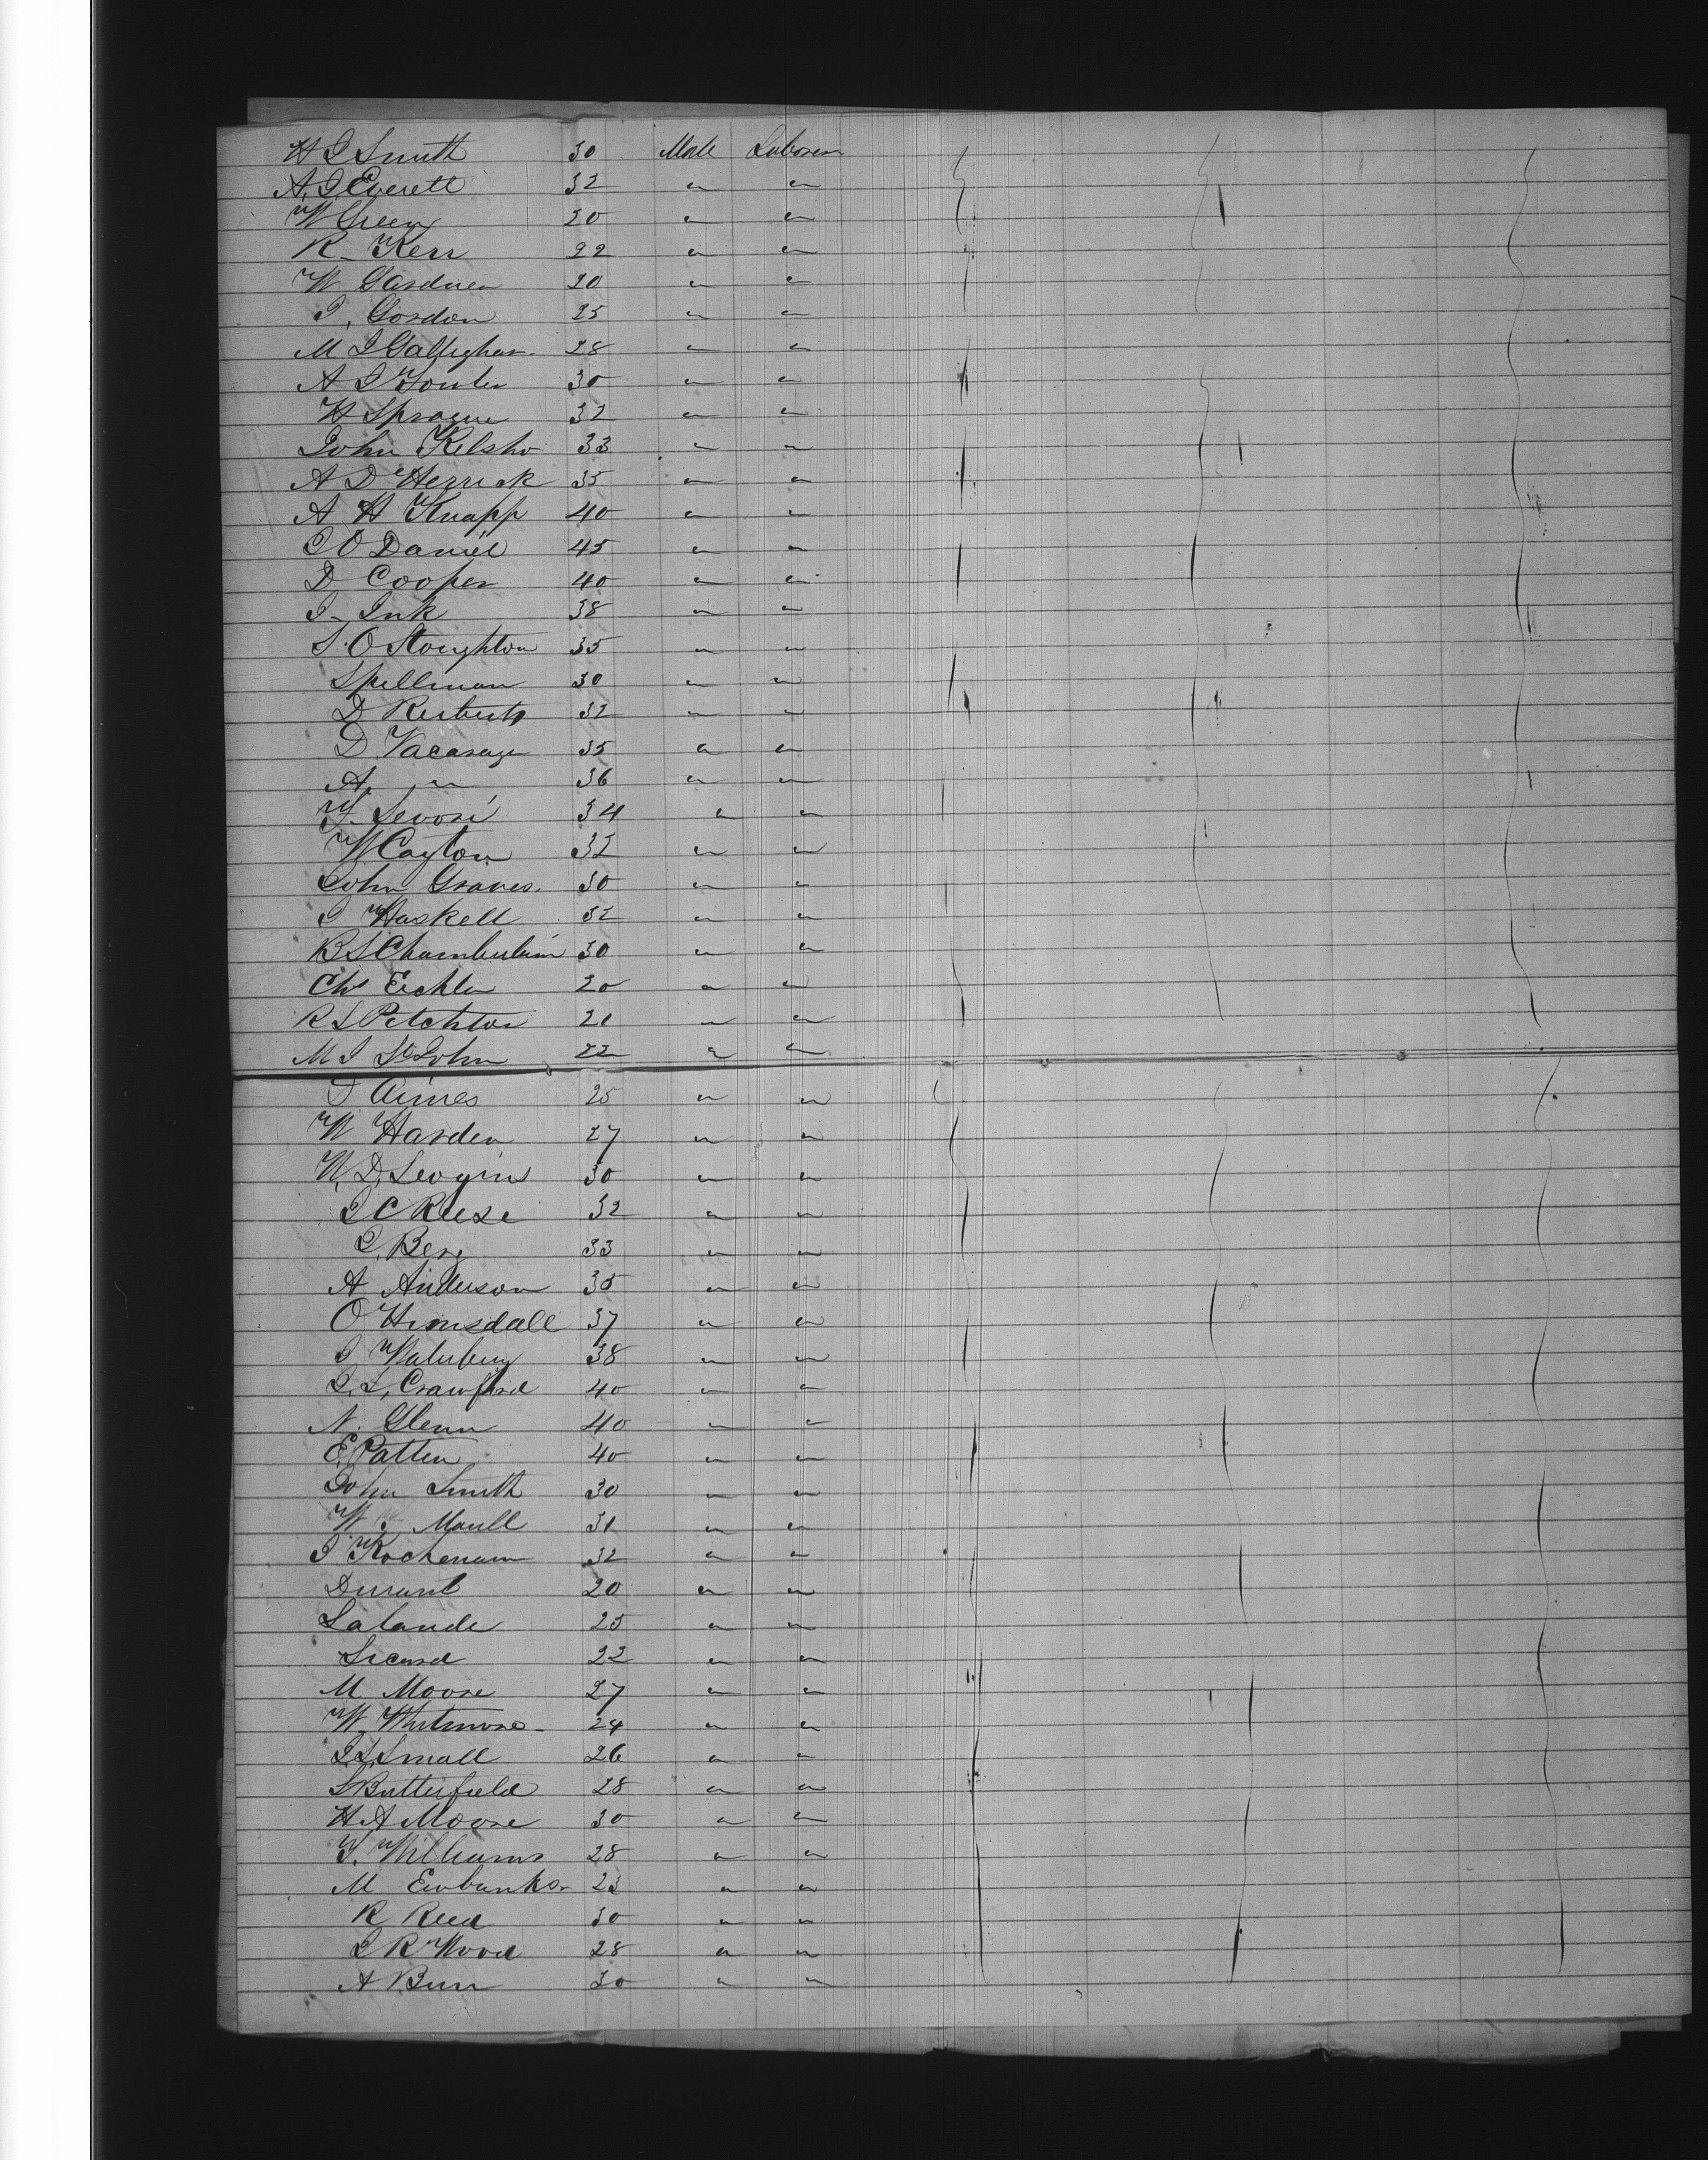 H I Smith 30 Male Laborer
A. I Everett 32 " "
W Green 20 " "
R. Kerr 22 " "
W Gardner 20 " "
I, Gordon 25 " "
M I Gallighan 28 " "
A I Fowler 30 " "
H Sprague 32 " "
John Kelsho 33 " "
A D Herrick 35 " "
A H Knapp 40 " "
I O Daniel 45 " "
D Cooper 40 " "
I - Ink 38 " "
S. O Stoughton 35 " "
Spellman 30 " "
D 32 " "
D 35 " "
A. " 36 " "
34 " "
W Cayton 32 " "
John Graves. 30 " "
I Haskell 32 " "
B S Chamberlain 30 " "
Chs Eichler 20 " "
R S 21 " "
M I St John 22 " "
I Aimes 25 " "
W Harden 27 " "
W. D. 30 " "
I C Reese 32 " "
I. Berg 33 " "
A Anderson 35 " "
O Hinsdall 37 " "
I Waterbury 38 " "
I. L. Crawford 40 " "
N. Glenn 40 " "
E. Patten 40 " "
John Smith 30 " "
W. Maull 31 " "
I Kochenam 32 " "
Durant 20 " "
Lalande 25 " "
Sicard 22 " "
M Moore 27 " "
W Whitmore 24 " "
I. L. Small 26 " "
S Butterfield 28 " "
H A Moore 30 " "
T. Williams 28 " "
M Ewbanks 23 " "
R Reed 30 " "
I R Wood 28 " "
A Burr 30 " "